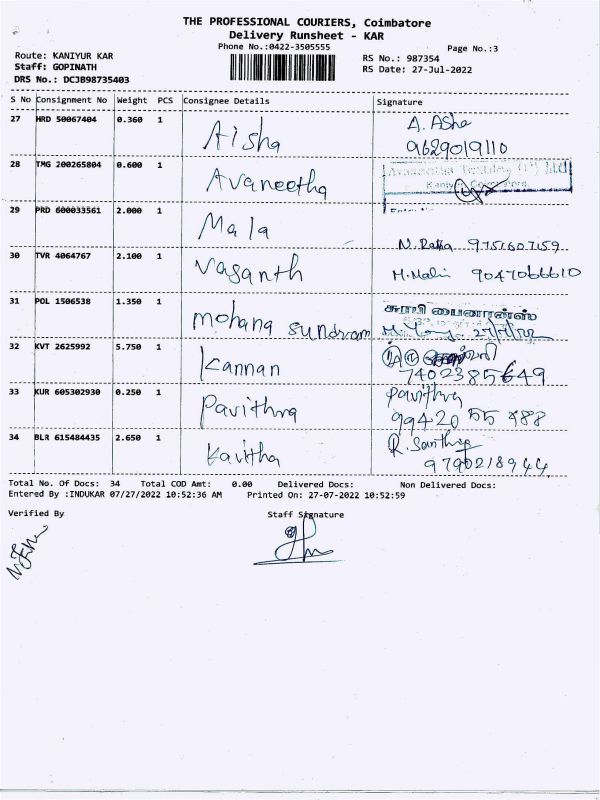 THE PROFESSIONAL COURIERS, Coimbatore
Delivery Runsheet - KAR
Phone No.:0422-3505555
Page No.:3
Route: KANIYUR KAR
RS No.: 987354
Staff: GOPINATH
RS Date: 27-Jul-2022
DRS No.: DCJB98735403
S No Consignment No Weight PCS Consignee Details Signature
27 HRD 50067404 0.360 1 Aisha A. Asha
9629019110
28 TMG 200265804 0.600 1 Avaneetha Avaneetha Textiles (P) Ltd
29 PRD 600033561 2.000 1 Mala
N. Radha 9751607159
30 TVR 4064767 2.100 1 Vasanth M. Malini 9047066610
31 POL 1506538 1.350 1 Mohana Sundram சுரபி பைனான்ஸ்
32 KVT 2625992 5.750 1 Kannan
7402385649
33 KUR 605302930 0.250 1 Pavithra Pavithra
99420 55 488
34 BLR 615484435 2.650 1 Kavitha R. Santhya
9790218944
Total No. Of Docs: 34 Total COD Amt: 0.00 Delivered Docs: Non Delivered Docs:
Entered By :INDUKAR 07/27/2022 10:52:36 AM Printed On: 27-07-2022 10:52:59
Verified By Staff Signature